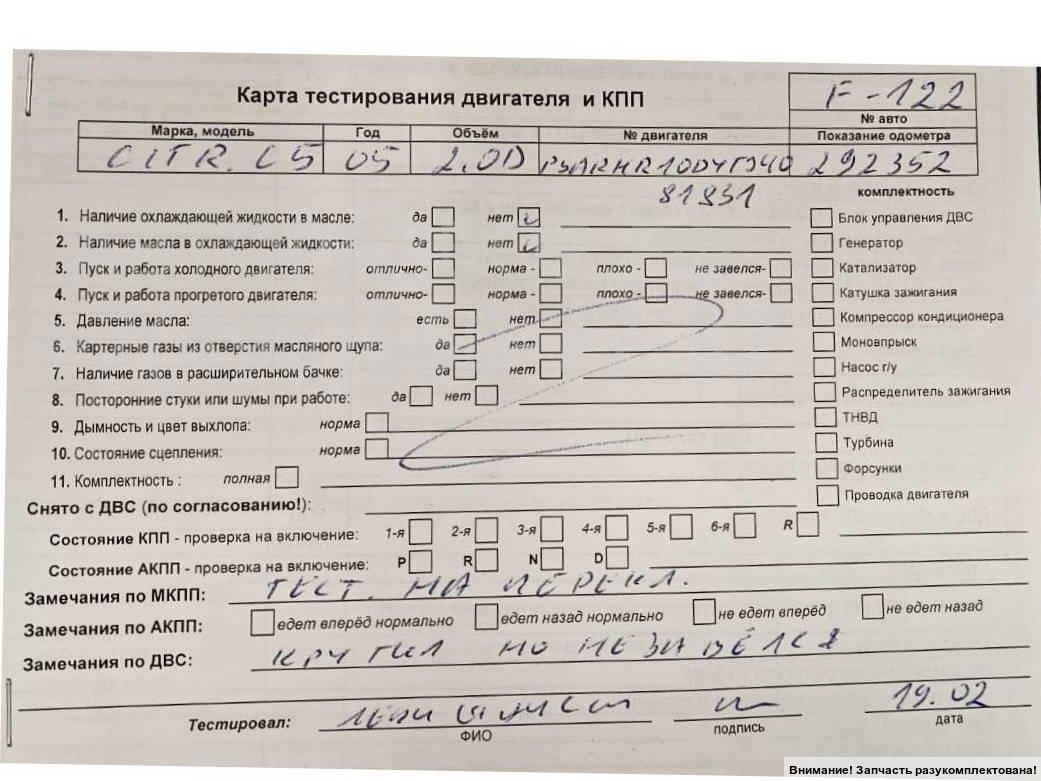 Карта тестирования двигателя и КПП
F-122
№ авто
Марка, модель Год Объём № двигателя Показание одометра
CITR. C5 05 2.0D PSARHR10DYTJ4G 292352
81931
комплектность
1. Наличие охлаждающей жидкости в масле: да нет Блок управления ДВС
2. Наличие масла в охлаждающей жидкости: да нет Генератор
3. Пуск и работа холодного двигателя: отлично- норма - плохо - не завелся- Катализатор
4. Пуск и работа прогретого двигателя: отлично- норма - плохо - не завелся- Катушка зажигания
5. Давление масла: есть нет Компрессор кондиционера
6. Картерные газы из отверстия масляного щупа: да нет Моновпрыск
7. Наличие газов в расширительном бачке: да нет Насос г/у
8. Посторонние стуки или шумы при работе: да нет Распределитель зажигания
9. Дымность и цвет выхлопа: норма ТНВД
10. Состояние сцепления: норма Турбина
11. Комплектность : полная Форсунки
Снято с ДВС (по согласованию!): Проводка двигателя
Состояние КПП - проверка на включение: 1-я 2-я 3-я 4-я 5-я 6-я R
Состояние АКПП - проверка на включение: P R N D
Замечания по МКПП: ТЕСТ. НА ПЕРЕКЛ.
Замечания по АКПП: едет вперёд нормально едет назад нормально не едет вперёд не едет назад
Замечания по ДВС: КРУТИЛ НО НЕ ЗАВЁЛСЯ
Тестировал: 19.02
ФИО подпись дата
Внимание! Запчасть разукомплектована!